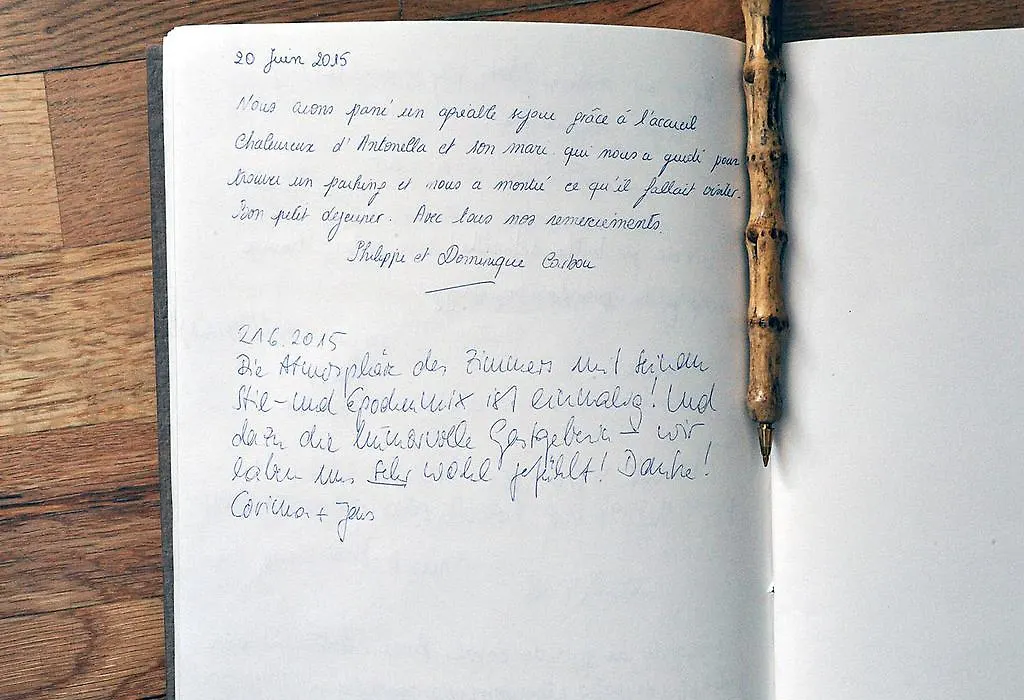 20 Juin 2015
Nous avons passé un agréable séjour grâce à l'accueil
chaleureux d'Antonella et son mari qui nous a guidé pour
trouver un parking et nous a montré ce qu'il fallait visiter.
Bon petit déjeuner. Avec tous nos remerciements.
Philippe et Dominique Carbou
21.6.2015
Die Atmosphäre des Zimmers mit seinem
Stil- und Epochenmix ist einmalig! Und
dazu die humorvolle Gastgeberin – wir
haben uns sehr wohl gefühlt! Danke!
Corinna + Jens